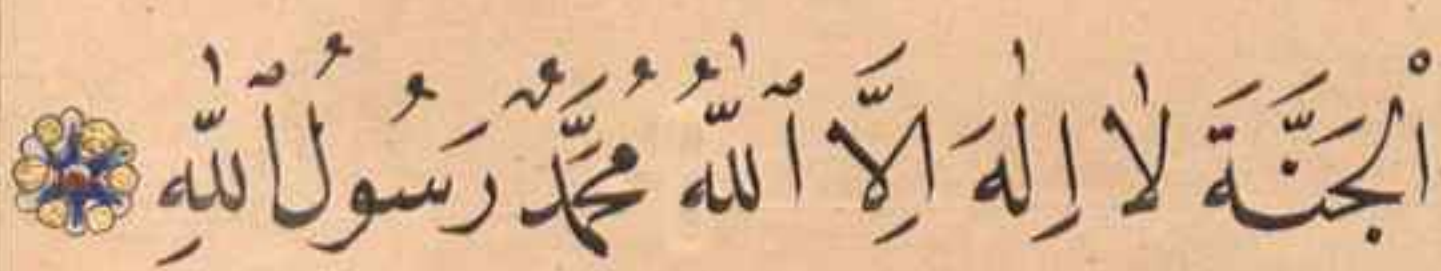 اَلْجَنَّةَ لَا اِلٰهَ اِلَّا ٱللّٰهُ مُحَمَّدٌ رَسُولُ ٱللّٰهِ